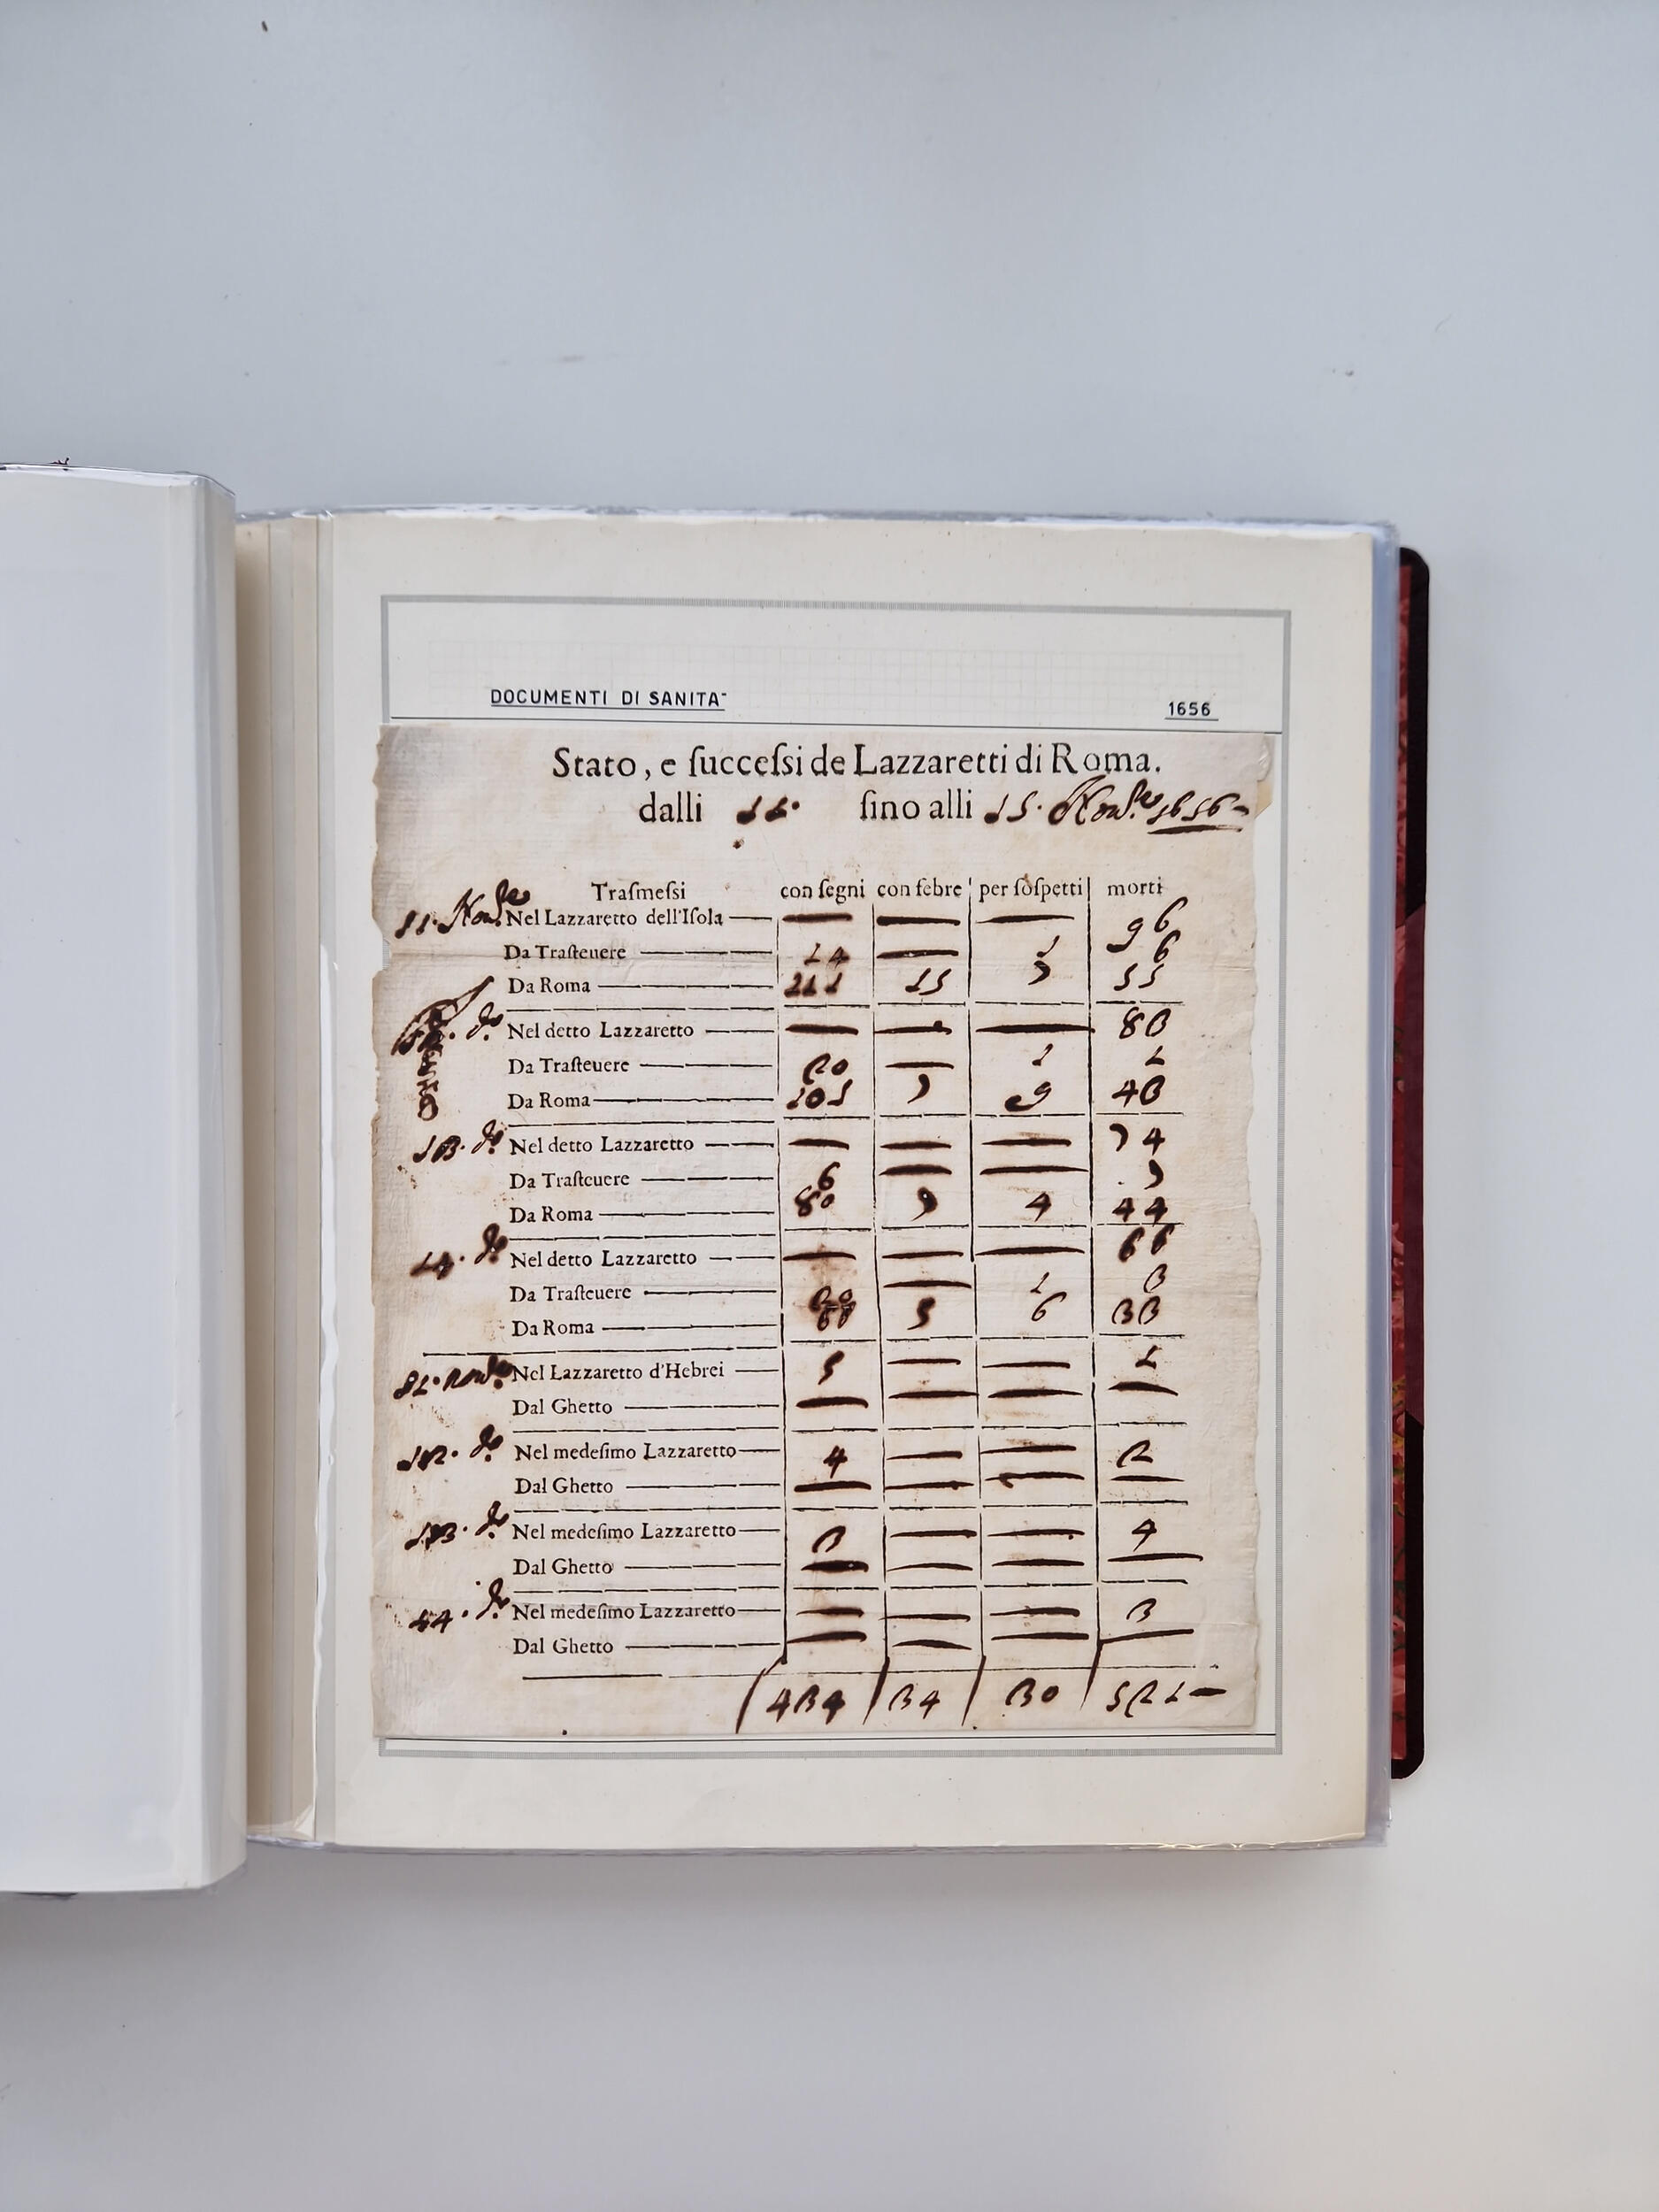 DOCUMENTI DI SANITA'
1656
Stato, e ſucceſsi de Lazzaretti di Roma.
dalli 11. fino alli 15. Nou.re 1656
Traſmeſsi con ſegni con febre per ſoſpetti morti
11. Nou.re Nel Lazzaretto dell'Iſola — — — — 96
Da Traſteuere — 14 — 1 6
Da Roma — 111 15 7 55
12. d.o Nel detto Lazzaretto — — — — 83
Da Traſteuere — 20 — 1 1
Da Roma — 101 7 9 43
13. d.o Nel detto Lazzaretto — — — — 74
Da Traſteuere — 6 — — 7
Da Roma — 80 7 4 44
14. d.o Nel detto Lazzaretto — — — — 66
Da Traſteuere — 22 — 1 3
Da Roma — 68 5 6 33
11. Nou.re Nel Lazzaretto d'Hebrei — 5 — — 1
Dal Ghetto — — — — —
12. d.o Nel medeſimo Lazzaretto — 4 — — 2
Dal Ghetto — — — — —
13. d.o Nel medeſimo Lazzaretto — 3 — — 4
Dal Ghetto — — — — —
14. d.o Nel medeſimo Lazzaretto — — — — 3
Dal Ghetto — — — — —
434 34 30 521 —